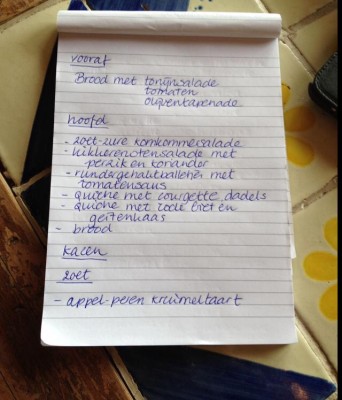 vooraf
Brood met tonijnsalade
tomaten
olijventapenade
hoofd
- zoet-zure komkommersalade
- kikkererwtensalade met
perzik en koriander
- rundergehaktballetjes met
tomatensaus
- quiche met courgette dadels
- quiche met rode biet en
geitenkaas
- brood
kazen
zoet
- appel-peren kruimeltaart